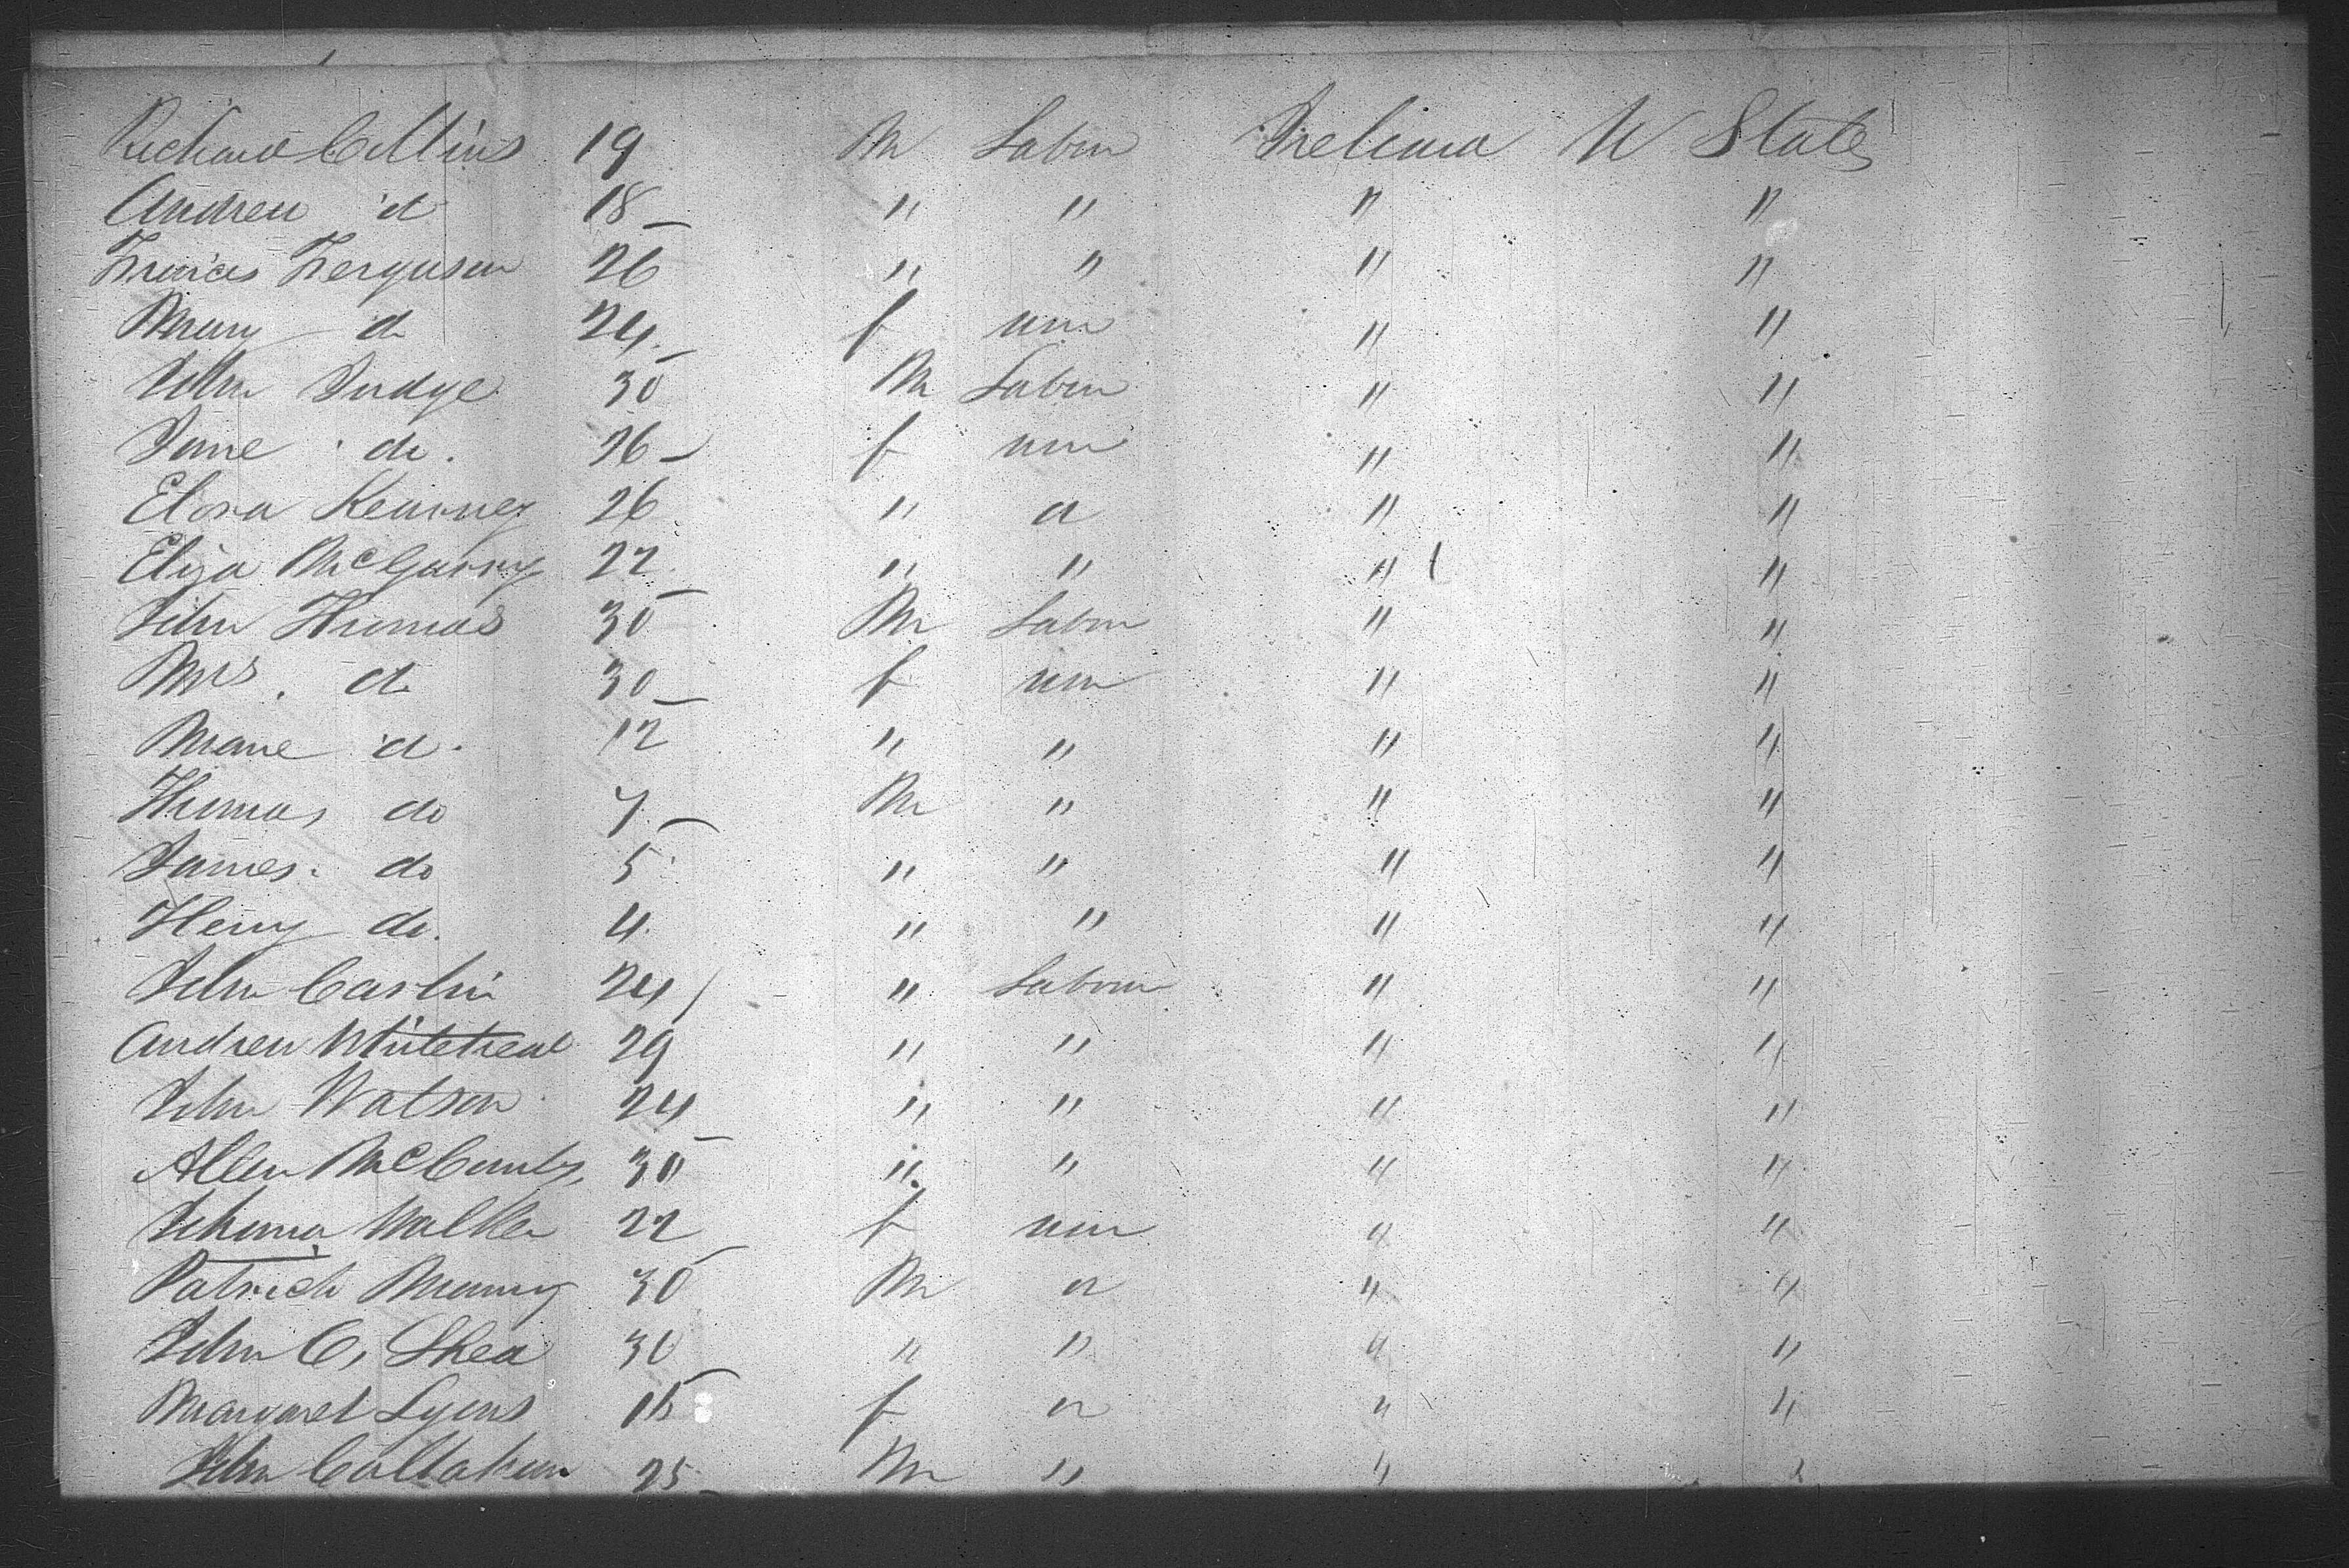 Richard Collins 19 M Labor Ireland U States
Andrew d 18 " " " "
Francis Ferguson 26 " " " "
Mary d 24 f non " "
John Judge 30 M Labor " "
Jane do. 26 f non " "
Elora Kearney 26 " a " "
Eliza McGarry 22 " " " "
John Thomas 30 M Labor " "
Mrs. d 30 f non " "
Marie d. 12 " " " "
Thomas do 7 M " " "
James. do 5 " " " "
Henry do. 4. " " " "
John Carlin 24 " Labor " "
Andrew Whitehead 29 " " " "
John Watson 24 " " " "
Allen McComb 30 " " " "
Walker 22 f non " "
Patrick 30 M a " "
John O, Shea 30 " " " "
Margaret Lyons f a " "
John Callahan 25 M " " "